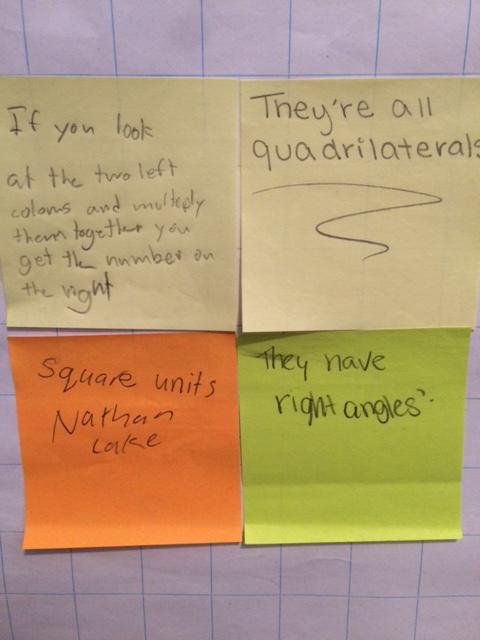 If you look
at the two left
coloms and multiply
them together you
get the number on
the right
They're all
quadrilaterals
Square units
Nathan
Lake
They have
right angles